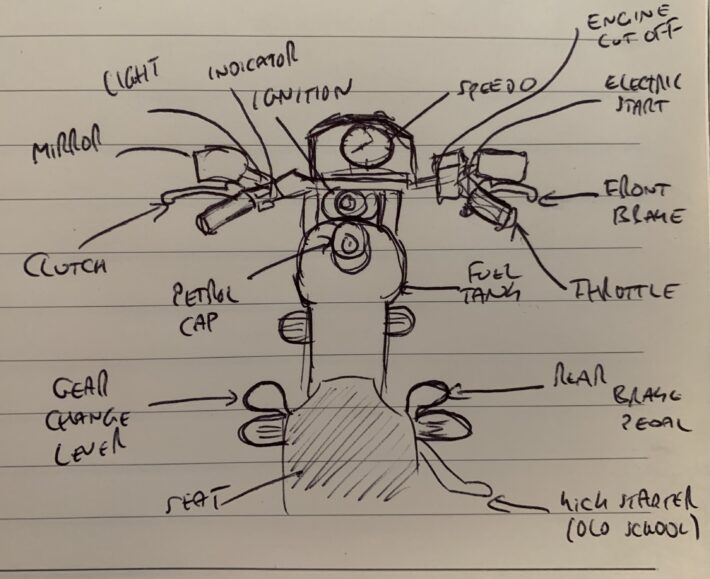 ENGINE
CUT OFF
LIGHT
INDICATOR
IGNITION
SPEEDO
ELECTRIC
START
MIRROR
FRONT
BRAKE
CLUTCH
PETROL
CAP
FUEL
TANK
THROTTLE
GEAR
CHANGE
LEVER
REAR
BRAKE
PEDAL
SEAT
KICK STARTER
(OLD SCHOOL)